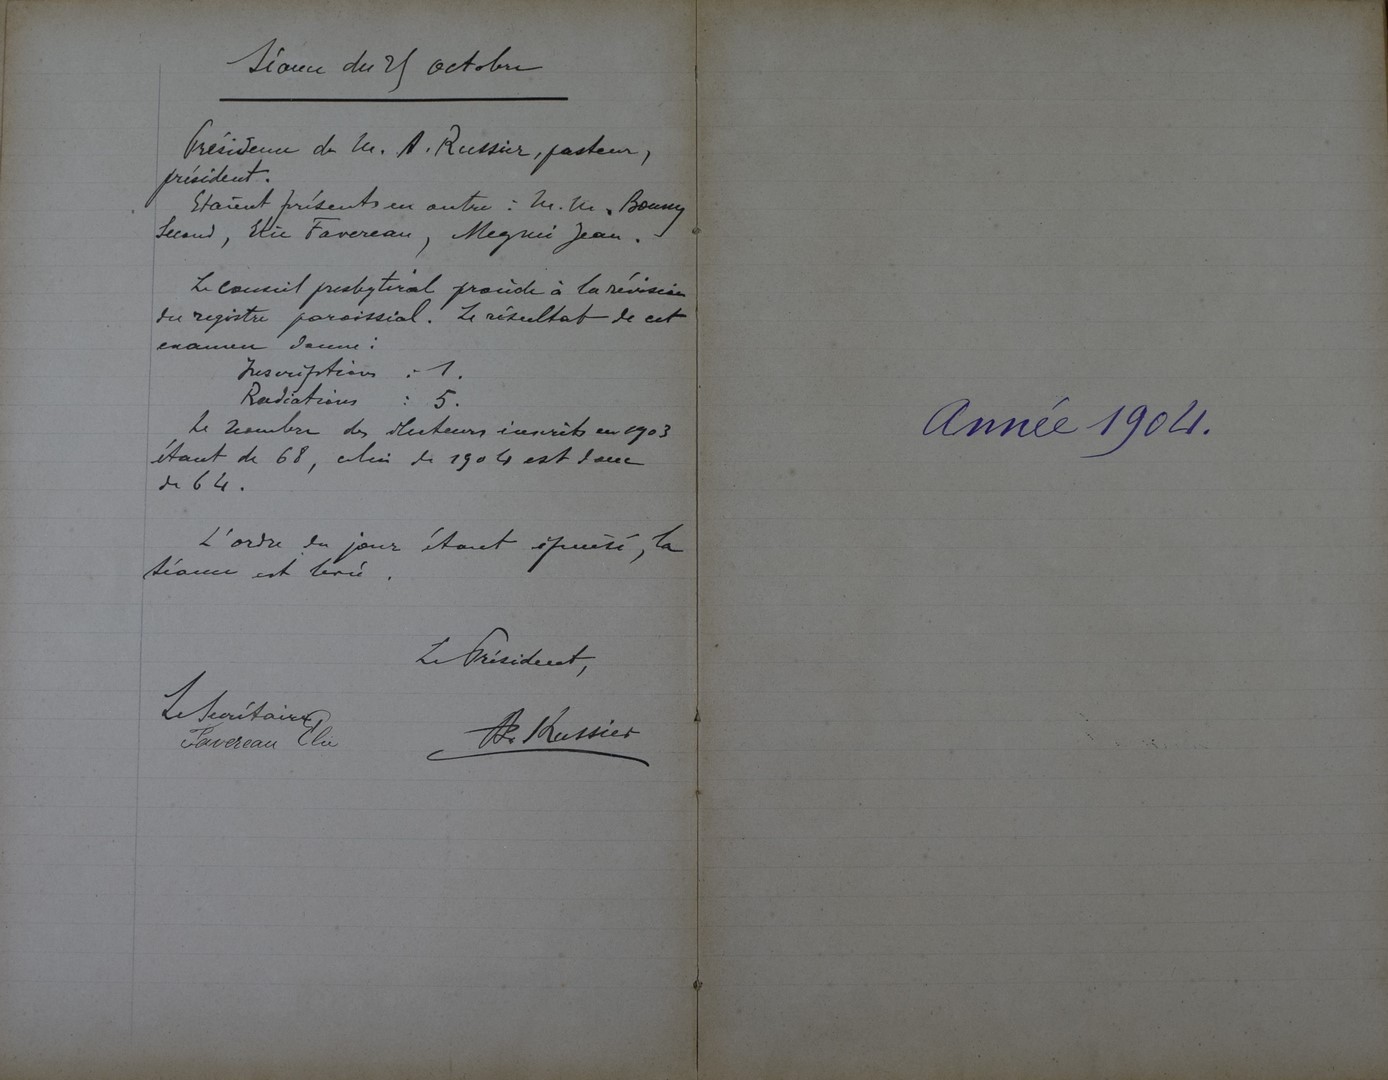 Séance du 25 octobre
Présidence de M. A. Russier, pasteur,
président.
Etaient présents en outre : M.M.
Second, Elie Favereau, Jean.
Le Conseil presbytéral procède à la révision
du registre paroissial. Le résultat de cet
examen donne :
Inscriptions : 1.
Radiations : 5.
Le nombre des électeurs inscrits en 1903
étant de 68, celui de 1904 est donc
de 64.
L'ordre du jour étant épuisé, la
séance est levée.
Le Président,
Le Secrétaire
Favereau Elie
A. Russier
Année 1904.